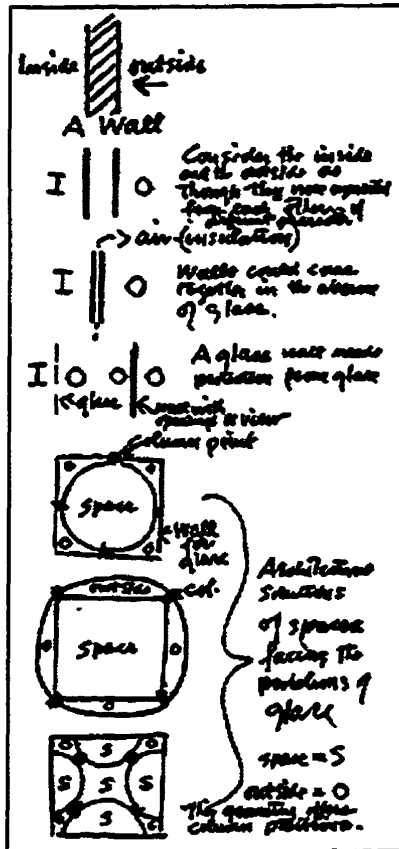 Inside outside
A Wall
Consider the inside
and the outside as
though they were separated
from each other, of
different character
I O
air (insulation)
I O
Walls could come
together in the absence
of glare.
I O O O
A glass wall needs
protection from glare
glass
wall with
openings to view
column point
O O
space
O O
wall
for
glare
outside col.
O space O
O
O S O
S S S
O S O
Architectural
solutions
of spaces
facing the
problems of
glare
space = S
outside = O
The geometry
column positions.